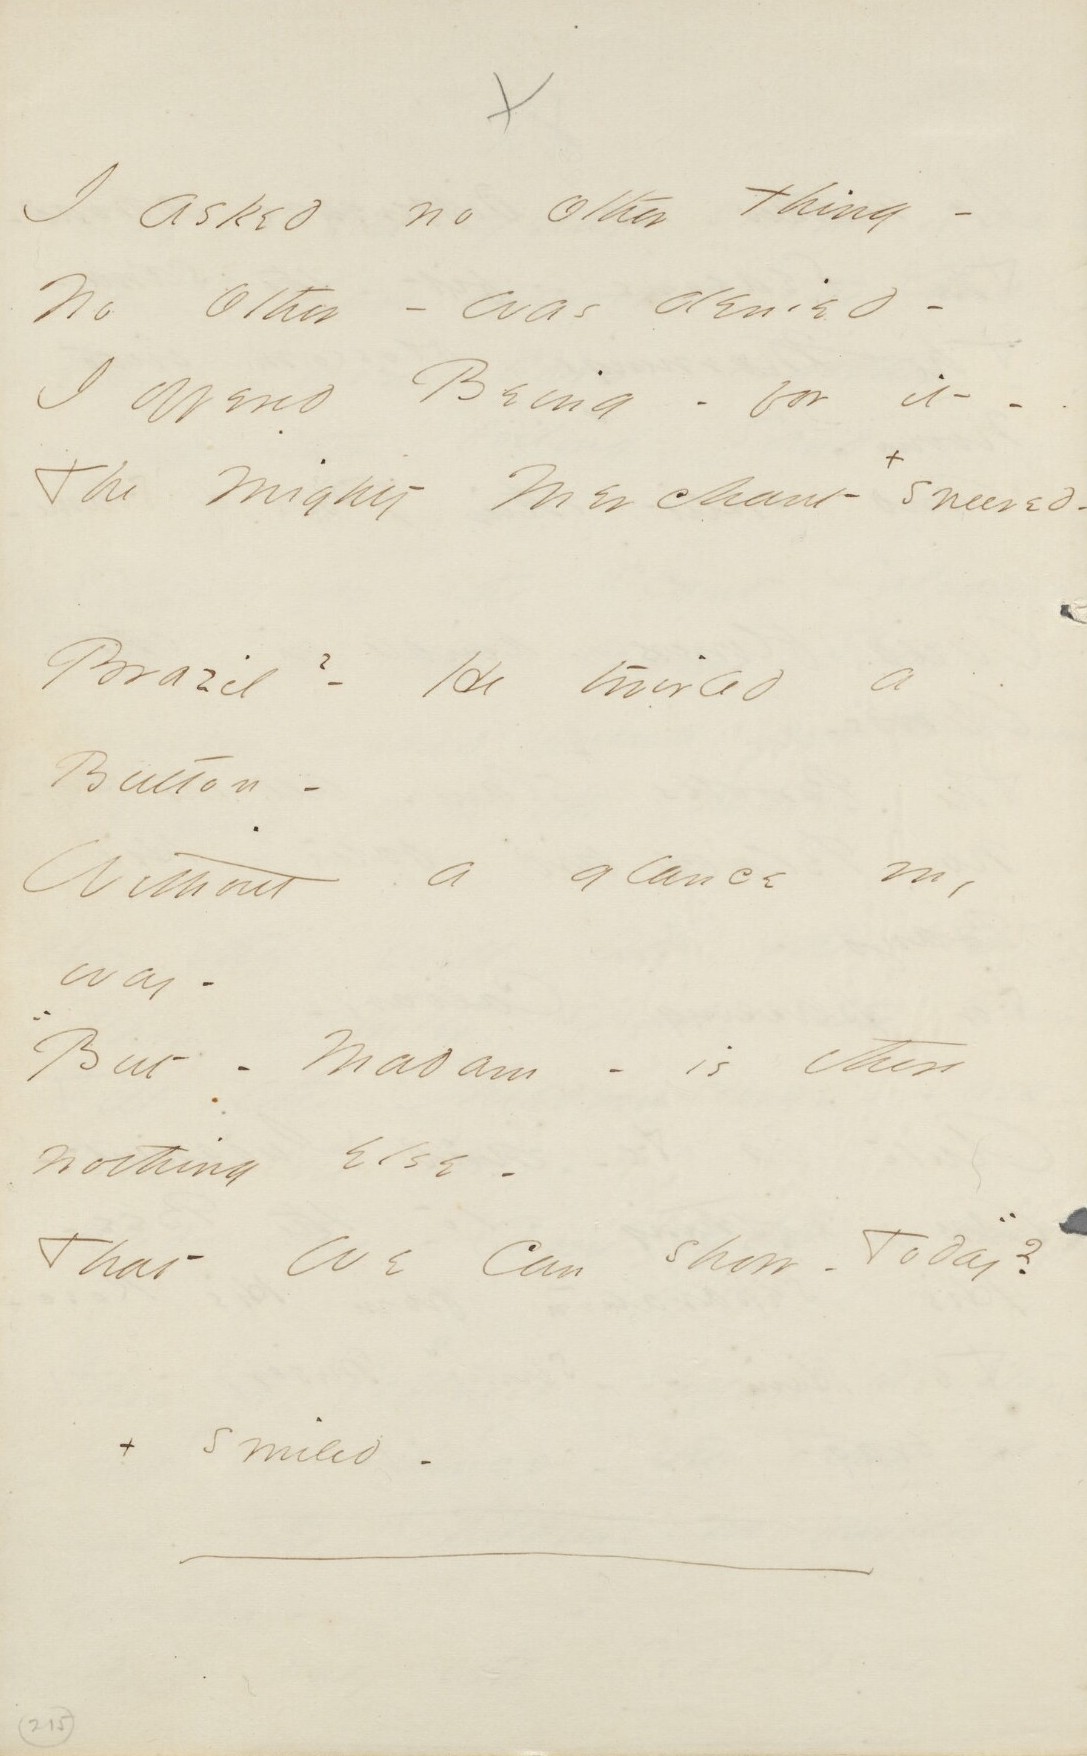 X
I asked no other thing -
No other - was denied -
I offered Being - for it -
The Mighty Merchant + sneered -
Brazil? - He twirled a
Button -
Without a glance my
way -
"But - Madam - is there
nothing else -
That We Can show - Today"?
+ smiled -
215